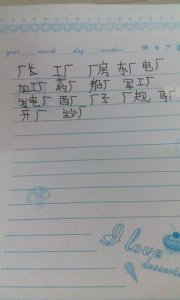 year    month    day    weather
厂长 工厂 厂房 东厂 电厂
加工厂 药厂 船厂 军工厂
发电厂 西厂 厂子 厂规
开厂 纱厂
I love
desserts